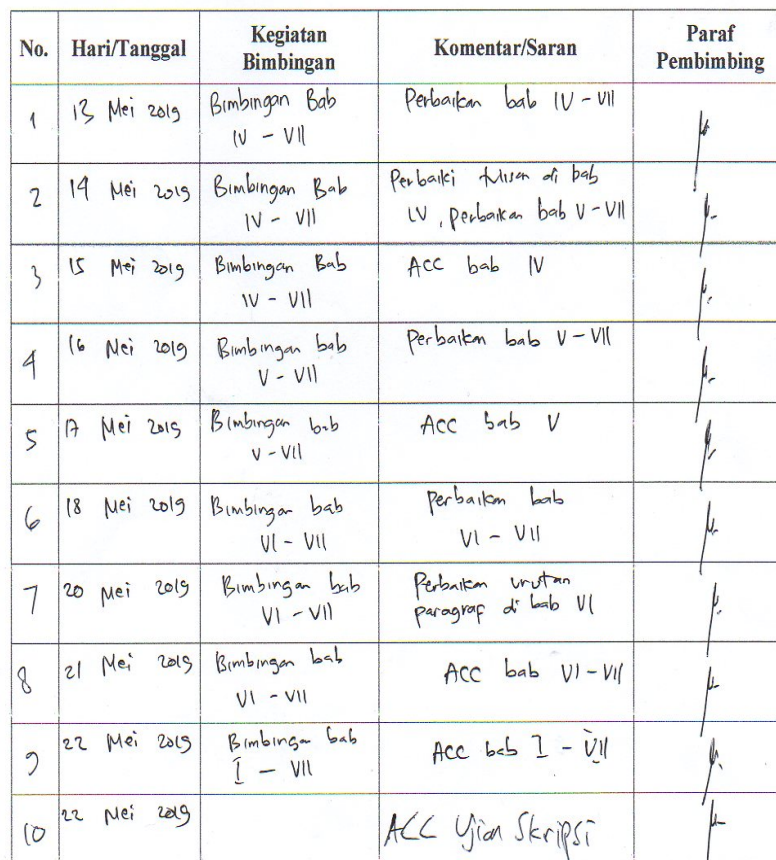 No. Hari/Tanggal Kegiatan Bimbingan Komentar/Saran Paraf Pembimbing
1 13 Mei 2019 Bimbingan Bab Perbaikan bab IV - VII
IV - VII
2 14 Mei 2019 Bimbingan Bab Perbaiki tulisan di bab
IV - VII IV, perbaikan bab V - VII
3 15 Mei 2019 Bimbingan Bab ACC bab IV
IV - VII
4 16 Mei 2019 Bimbingan bab Perbaikan bab V - VII
V - VII
5 17 Mei 2019 Bimbingan bab ACC bab V
V - VII
6 18 Mei 2019 Bimbingan bab Perbaikan bab
VI - VII VI - VII
7 20 Mei 2019 Bimbingan bab Perbaikan urutan
VI - VII paragraf di bab VI
8 21 Mei 2019 Bimbingan bab ACC bab VI - VII
VI - VII
9 22 Mei 2019 Bimbingan bab ACC bab I - VII
I - VII
10 22 Mei 2019 ACC Ujian Skripsi